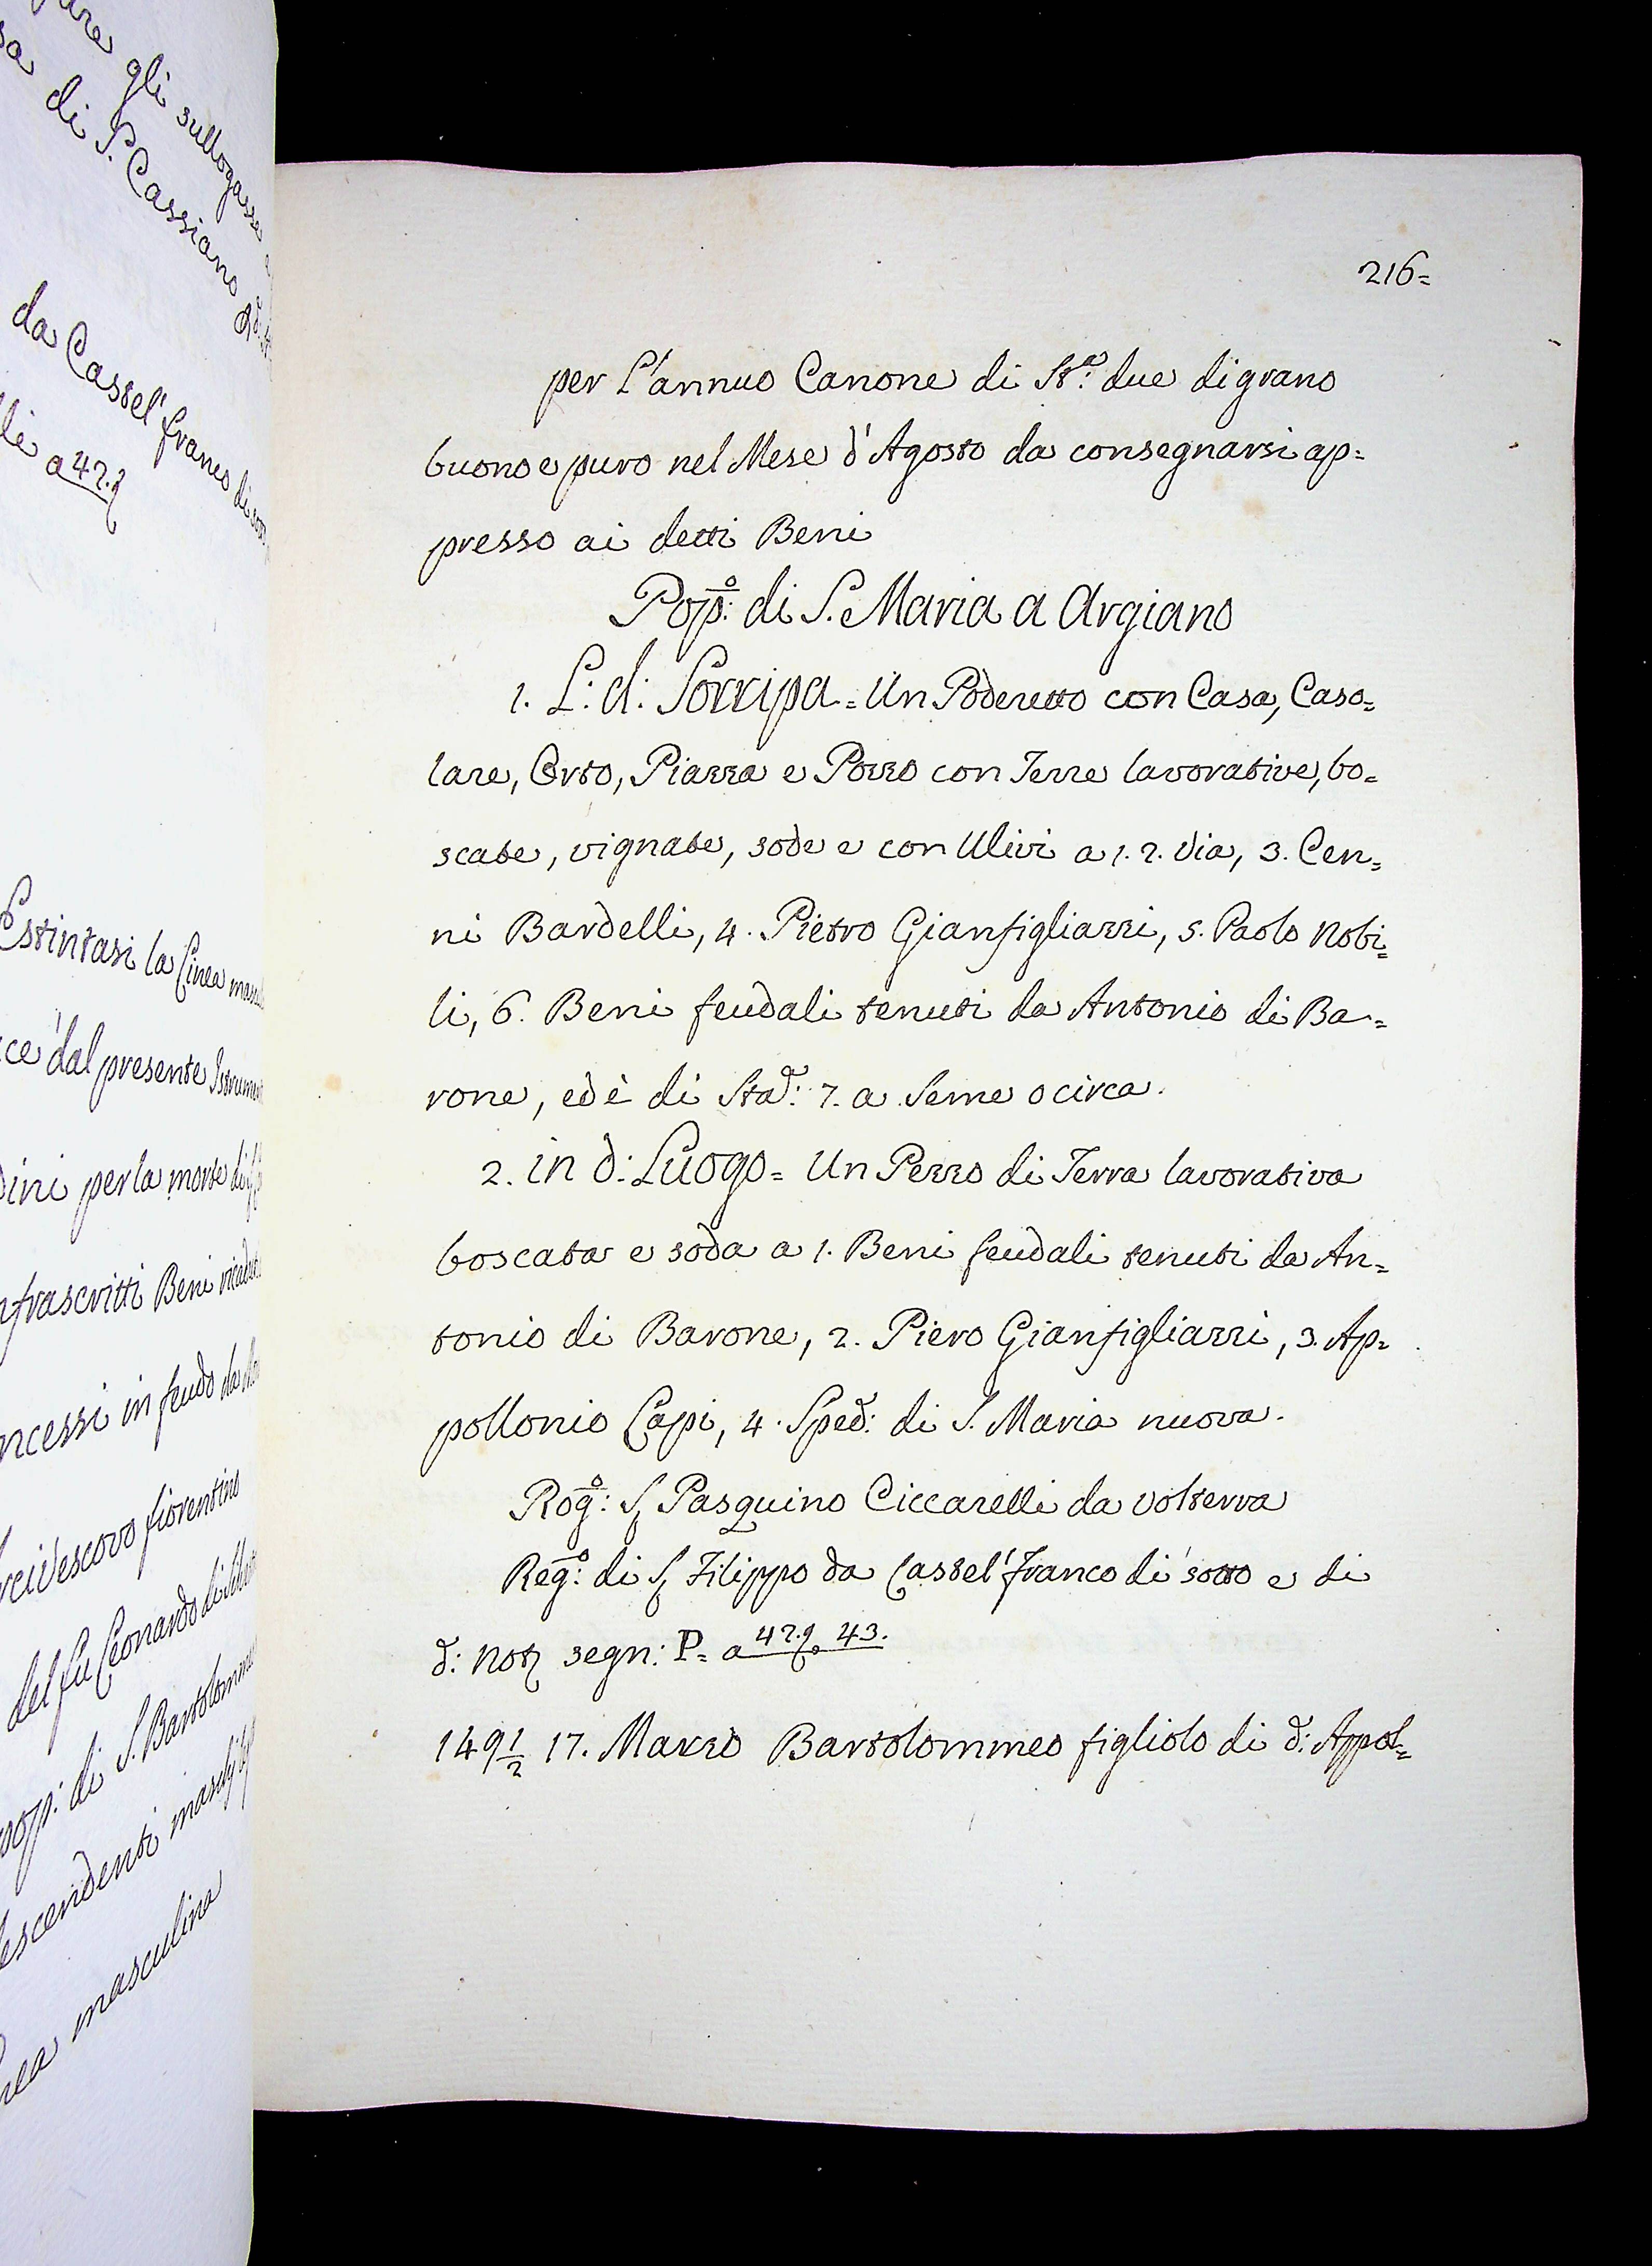 gli sullogasse
di S. Cassiano
da Castel' franco di
a 42.
Estintasi la Linea
dal presente
per la morte di
Beni
in feudo da
fiorentino
del fu Leonardo di
di S. Bartolomm
masculina
216=
per l'annuo Canone di St.ª due di grano
buono e puro nel Mese d'Agosto da consegnarsi ap=
presso ai detti Beni
Pop:º di S. Maria a Argiano
1. L: d: Sorripa = Un Poderetto con Casa, Caso=
lare, Orto, Piazza e Pozzo con Terre lavorative, bo=
scate, vignate, sode e con Ulivi a 1. 2. via, 3. Cen=
ni Bardelli, 4. Pietro Gianfigliazzi, 5. Paolo Nobi=
li, 6. Beni feudali tenuti da Antonio di Ba=
rone, ed è di Sta: 7. a Seme o circa.
2. in d: Luogo = Un Pezzo di Terra lavorativa
boscata e soda a 1. Beni feudali tenuti da An=
tonio di Barone, 2. Piero Gianfigliazzi, 3. Ap=
pollonio Lapi, 4. Sped: di S. Maria nuova.
Rog:º S Pasquino Ciccarelli da Volterra
Reg:º di S Filippo da Castel' franco di sotto e di
d: Not segn: P= a 42. 43.
149½ 17. Marzo Bartolommeo figliolo di d: Appol=